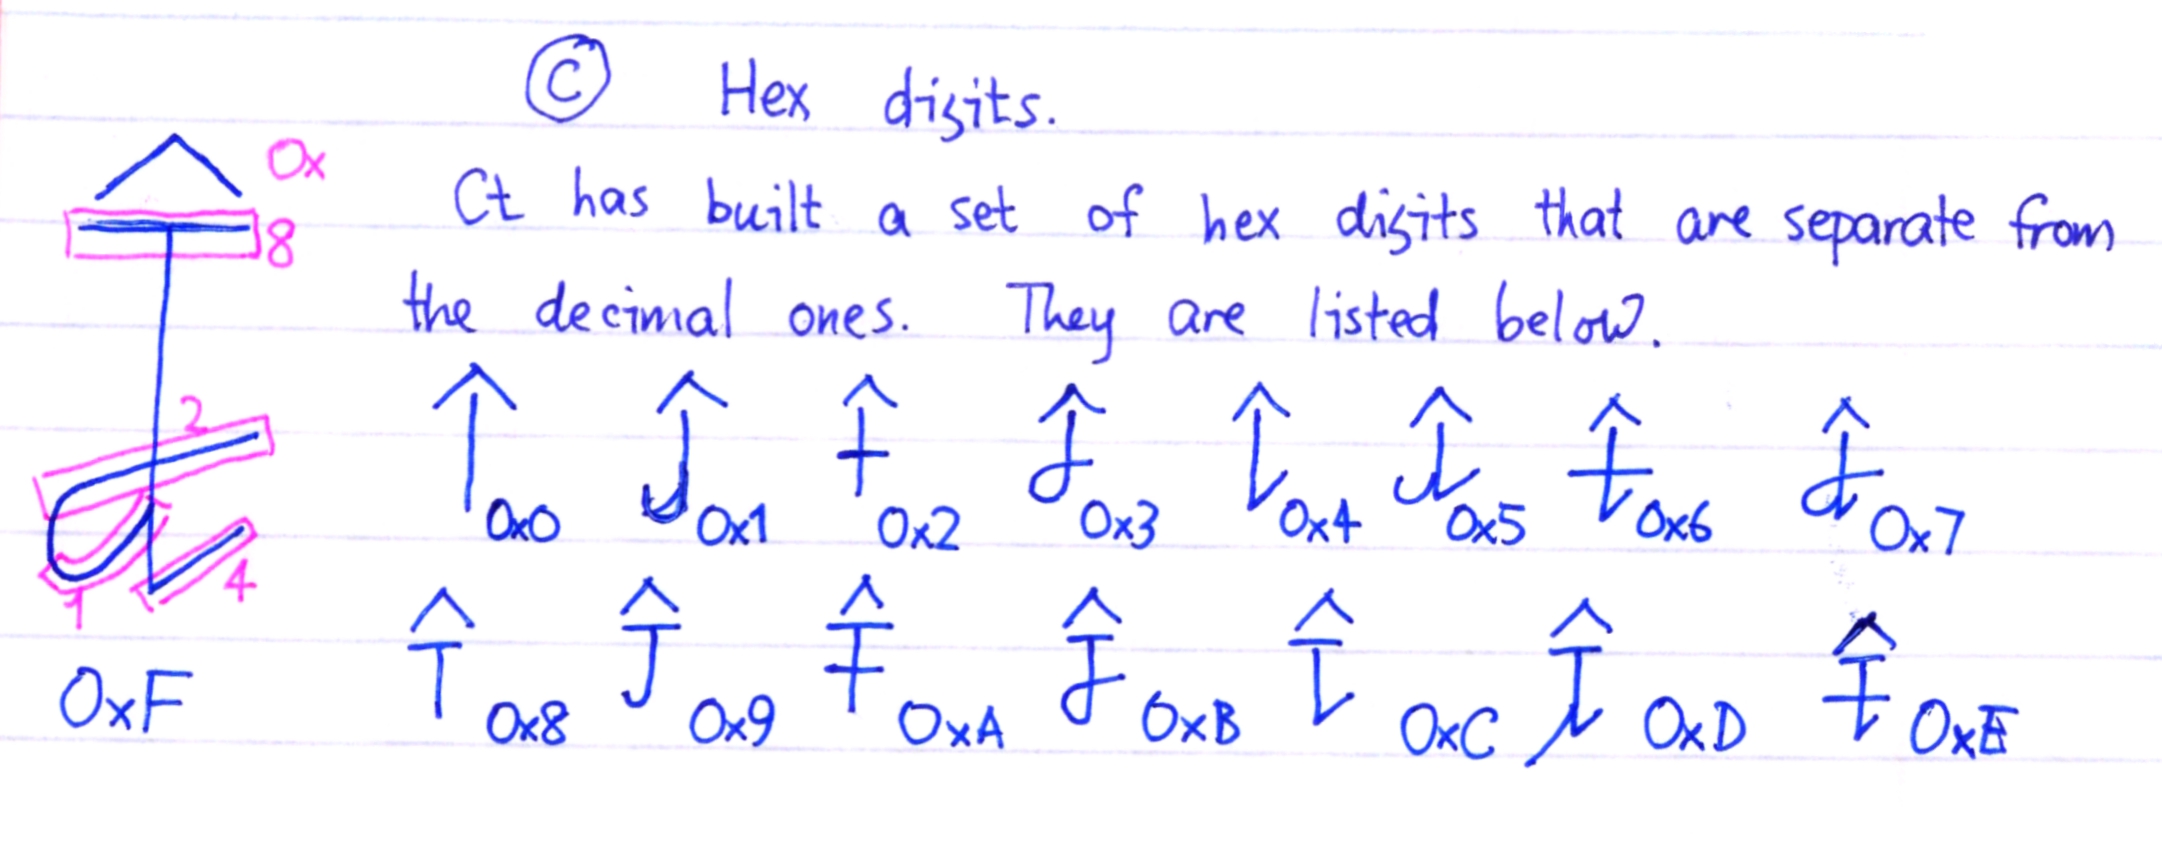 Ⓒ Hex digits.
Ct has built a set of hex digits that are separate from
the decimal ones. They are listed below.
0x
8
2
1
4
0xF
0x0 0x1 0x2 0x3 0x4 0x5 0x6 0x7
0x8 0x9 0xA 0xB 0xC 0xD 0xE